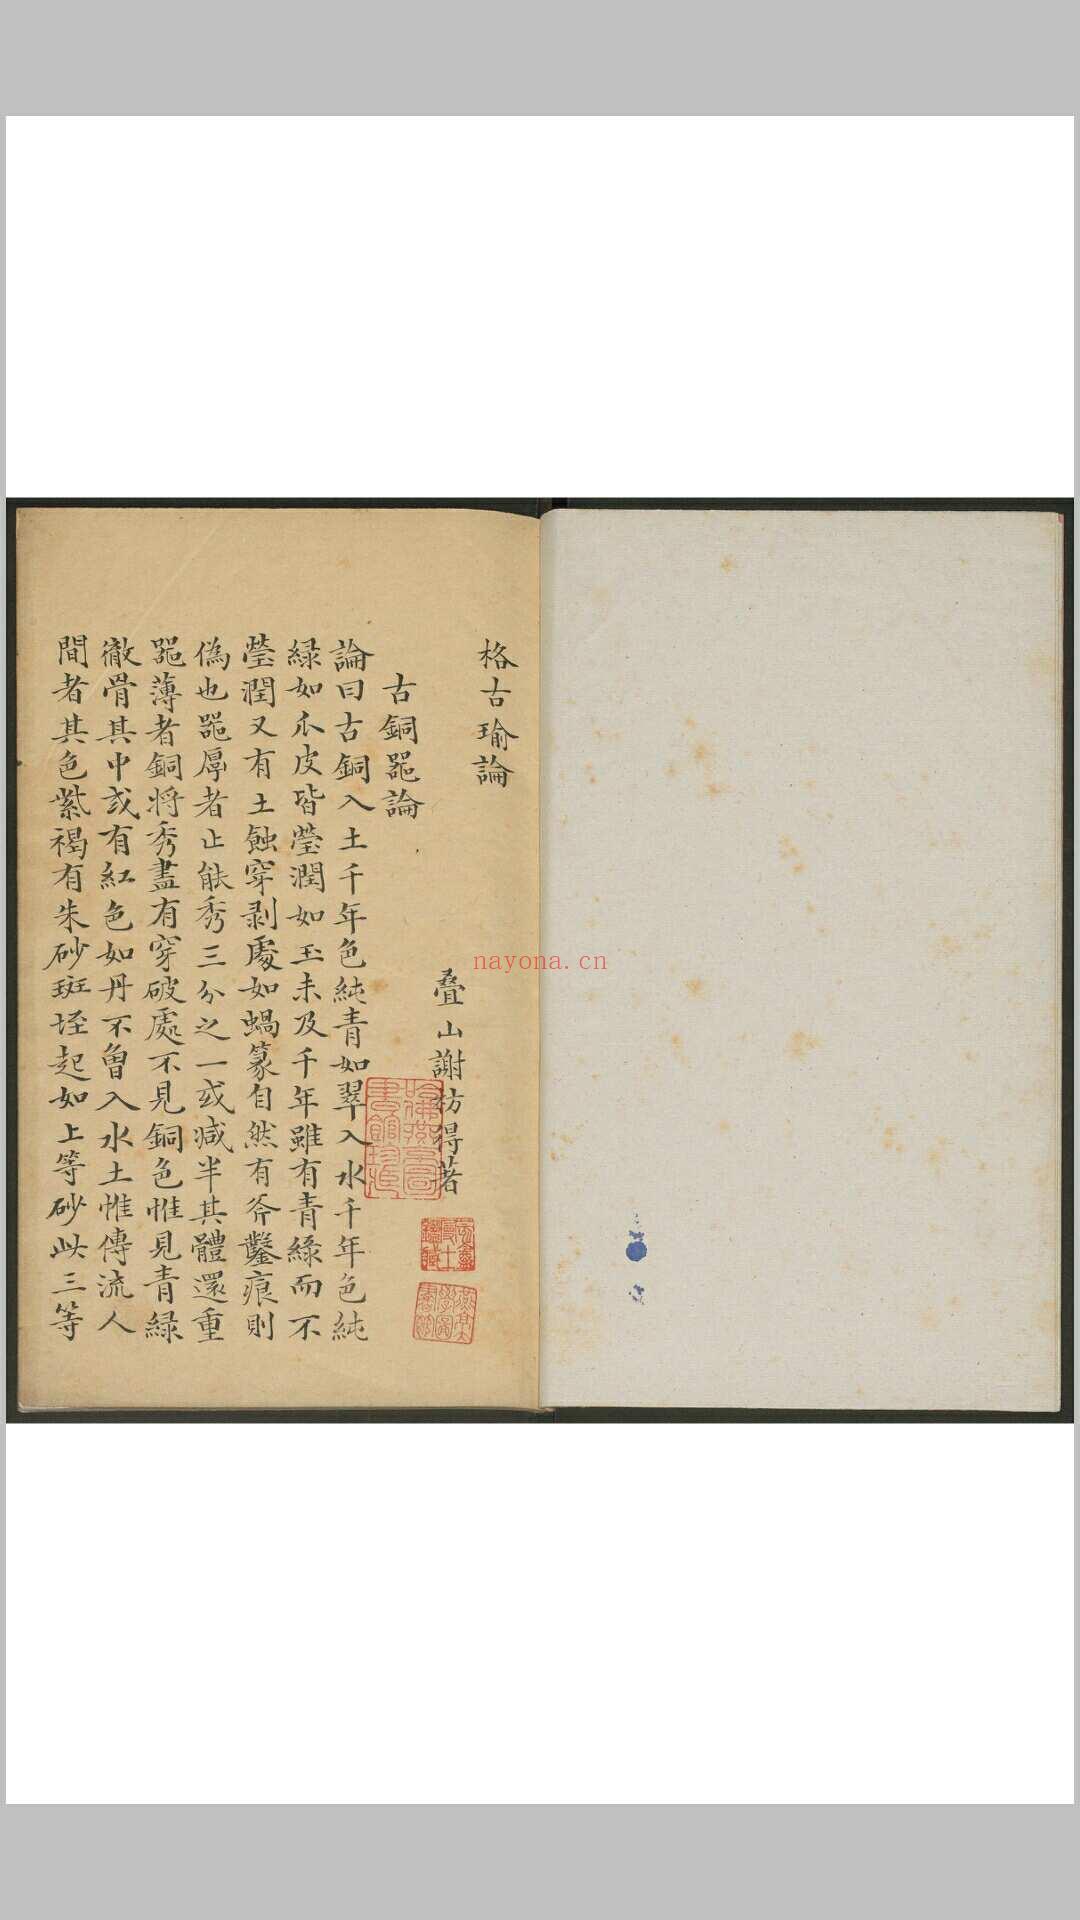 格古瑜論
疊山謝枋得著
古銅器論
論曰古銅入土千年色純青如翠入水千年色純
緑如爪皮皆瑩潤如玉未及千年雖有青綠而不
瑩潤又有土蝕穿剥處如蝸篆自然有斧鑿痕則
偽也噐厚者止能秀三分之一或减半其體還重
噐薄者銅将秀盡有穿破處不見銅色惟見青緑
徹骨其中或有紅色如丹不曾入水土惟傳流人
間者其色紫褐有朱砂斑垤起如上等砂此三等
nayona.cn